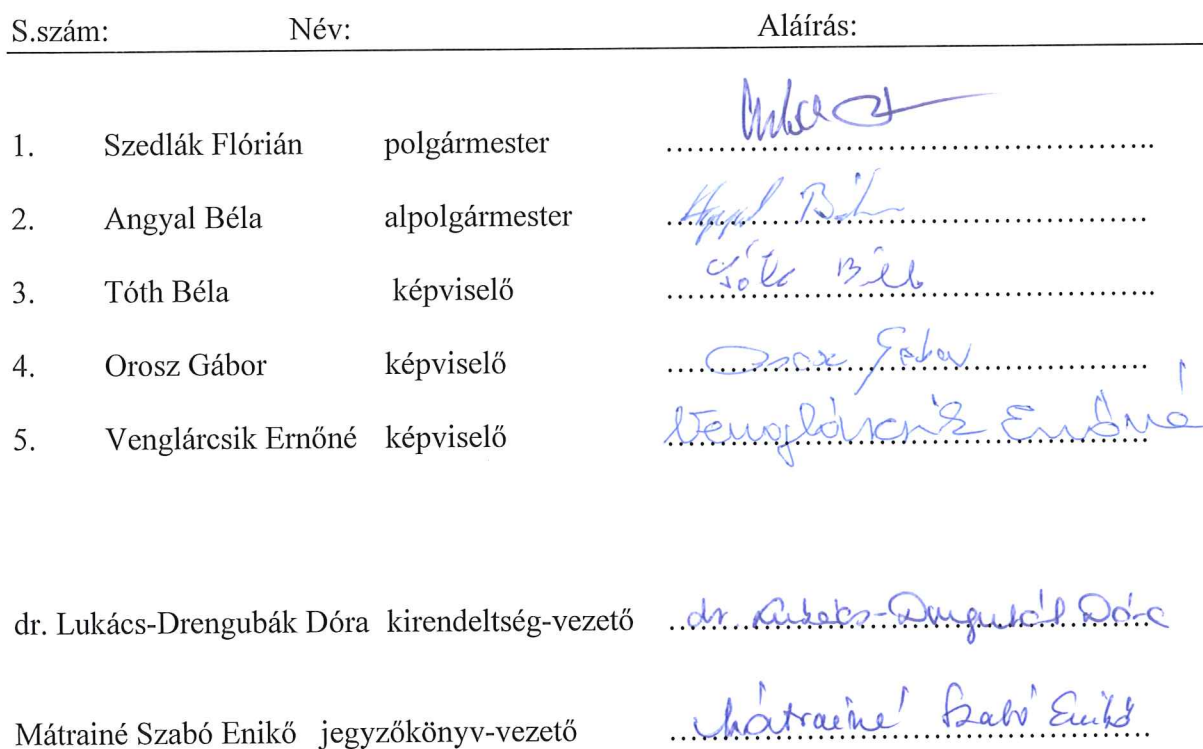 S.szám: Név: Aláírás:
1. Szedlák Flórián polgármester
2. Angyal Béla alpolgármester Angyal Béla
3. Tóth Béla képviselő Tóth Béla
4. Orosz Gábor képviselő Orosz Gábor
5. Venglárcsik Ernőné képviselő Venglárcsik Ernőné
dr. Lukács-Drengubák Dóra kirendeltség-vezető dr. Lukács-Drengubák Dóra
Mátrainé Szabó Enikő jegyzőkönyv-vezető Mátrainé Szabó Enikő